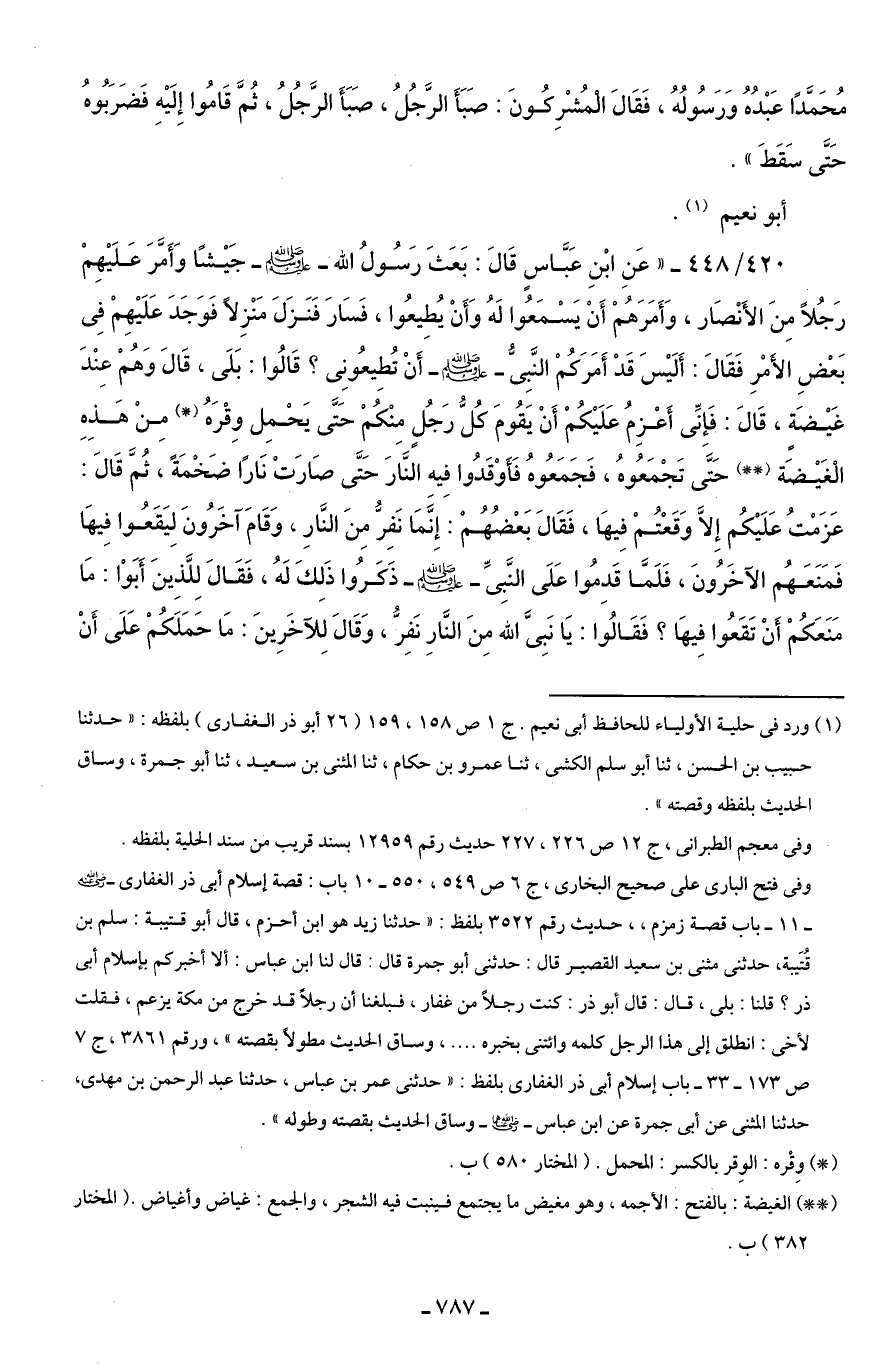 مُحَمَّدًا عَبْدُهُ وَرَسُولُهُ ، فَقَالَ الْمُشْرِكُونَ : صَبَأَ الرَّجُلُ ، صَبَأَ الرَّجُلُ ، ثُمَّ قَامُوا إِلَيْهِ فَضَرَبُوهُ
حَتَّى سَقَطَ » .
أبو نعيم (١) .
٤٤٨/٤٢٠ ـ « عَنِ ابْنِ عَبَّاسٍ قَالَ : بَعَثَ رَسُولُ الله ـ ﷺ ـ جَيْشًا وَأَمَّرَ عَلَيْهِمْ
رَجُلاً مِنَ الأَنْصَارِ ، وَأَمَرَهُمْ أَنْ يَسْمَعُوا لَهُ وَأَنْ يُطِيعُوا ، فَسَارَ فَنَزَلَ مَنْزِلاً فَوَجَدَ عَلَيْهِمْ فِى
بَعْضِ الأَمْرِ فَقَالَ : أَلَيْسَ قَدْ أَمَرَكُمْ النَّبِىُّ ـ ﷺ ـ أَنْ تُطِيعُونِى ؟ قَالُوا : بَلَى ، قَالَ وَهُمْ عِنْدَ
غَيْضَةٍ ، قَالَ : فَإِنِّى أَعْزِمُ عَلَيْكُمْ أَنْ يَقُومَ كُلُّ رَجُلٍ مِنْكُمْ حَتَّى يَحْمِلَ وِقْرَهُ (*) مِنْ هَذِهِ
الْغَيْضَةِ (**) حَتَّى تَجْمَعُوهُ ، فَجَمَعُوهُ فَأَوْقَدُوا فِيهِ النَّارَ حَتَّى صَارَتْ نَارًا ضَخْمَةً ، ثُمَّ قَالَ :
عَزَمْتُ عَلَيْكُم إِلاَّ وَقَعْتُمْ فِيهَا ، فَقَالَ بَعْضُهُمْ : إِنَّمَا نَفِرُّ مِنَ النَّارِ ، وَقَامَ آخَرُونَ لِيَقَعُوا فِيهَا
فَمَنَعَهُم الآخَرُونَ ، فَلَمَّا قَدِمُوا عَلَى النَّبِىِّ ـ ﷺ ـ ذَكَرُوا ذَلِكَ لَهُ ، فَقَالَ لِلَّذِينَ أَبَوْا : مَا
مَنَعَكُمْ أَنْ تَقَعُوا فِيهَا ؟ فَقَالُوا : يَا نَبِىَّ الله مِنَ النَّارِ نَفِرُّ ، وَقَالَ لِلآخَرِينَ : مَا حَمَلَكُمْ عَلَى أَنْ
(١) ورد فى حلية الأولياء للحافظ أبى نعيم . ج ١ ص ١٥٨ ، ١٥٩ ( ٢٦ أبو ذر الغفارى ) بلفظه : « حدثنا
حبيب بن الحسن ، ثنا أبو سلم الكشى ، ثنا عمرو بن حكام ، ثنا المثنى بن سعيد ، ثنا أبو جمرة ، وساق
الحديث بلفظه وقصته » .
وفى معجم الطبرانى ، ج ١٢ ص ٢٢٦ ، ٢٢٧ حديث رقم ١٢٩٥٩ بسند قريب من سند الحلية بلفظه .
وفى فتح البارى على صحيح البخارى ، ج ٦ ص ٥٤٩ ، ٥٥٠ ـ ١٠ باب : قصة إسلام أبى ذر الغفارى ـ رضي الله عنه
ـ ١١ ـ باب قصة زمزم ، ، حديث رقم ٣٥٢٢ بلفظ : « حدثنا زيد هو ابن أحزم ، قال أبو قتيبة : سلم بن
قُتَيبة، حدثنى مثنى بن سعيد القصير قال : حدثنى أبو جمرة قال : قال لنا ابن عباس : ألا أخبركم بإسلام أبى
ذر ؟ قلنا : بلى ، قال : قال أبو ذر : كنت رجلاً من غفار ، فبلغنا أن رجلاً قد خرج من مكة يزعم ، فقلت
لأخى : انطلق إلى هذا الرجل كلمه وائتنى بخبره .... ، وساق الحديث مطولاً بقصته » ، ورقم ٣٨٦١ ، ج ٧
ص ١٧٣ ـ ٣٣ ـ باب إسلام أبى ذر الغفارى بلفظ : « حدثنى عمر بن عباس ، حدثنا عبد الرحمن بن مهدى،
حدثنا المثنى عن أبى جمرة عن ابن عباس ـ رضي الله عنهما ـ وساق الحديث بقصته وطوله » .
(*) وِقْره : الوقر بالكسر : المحمل . ( المختار ٥٨٠ ) ب .
(**) الغيضة : بالفتح : الأجمه ، وهو مغيض ما يجتمع فينبت فيه الشجر ، والجمع : غياض وأغياض .( المختار
٣٨٢ ) ب .
ـ ٧٨٧ ـ